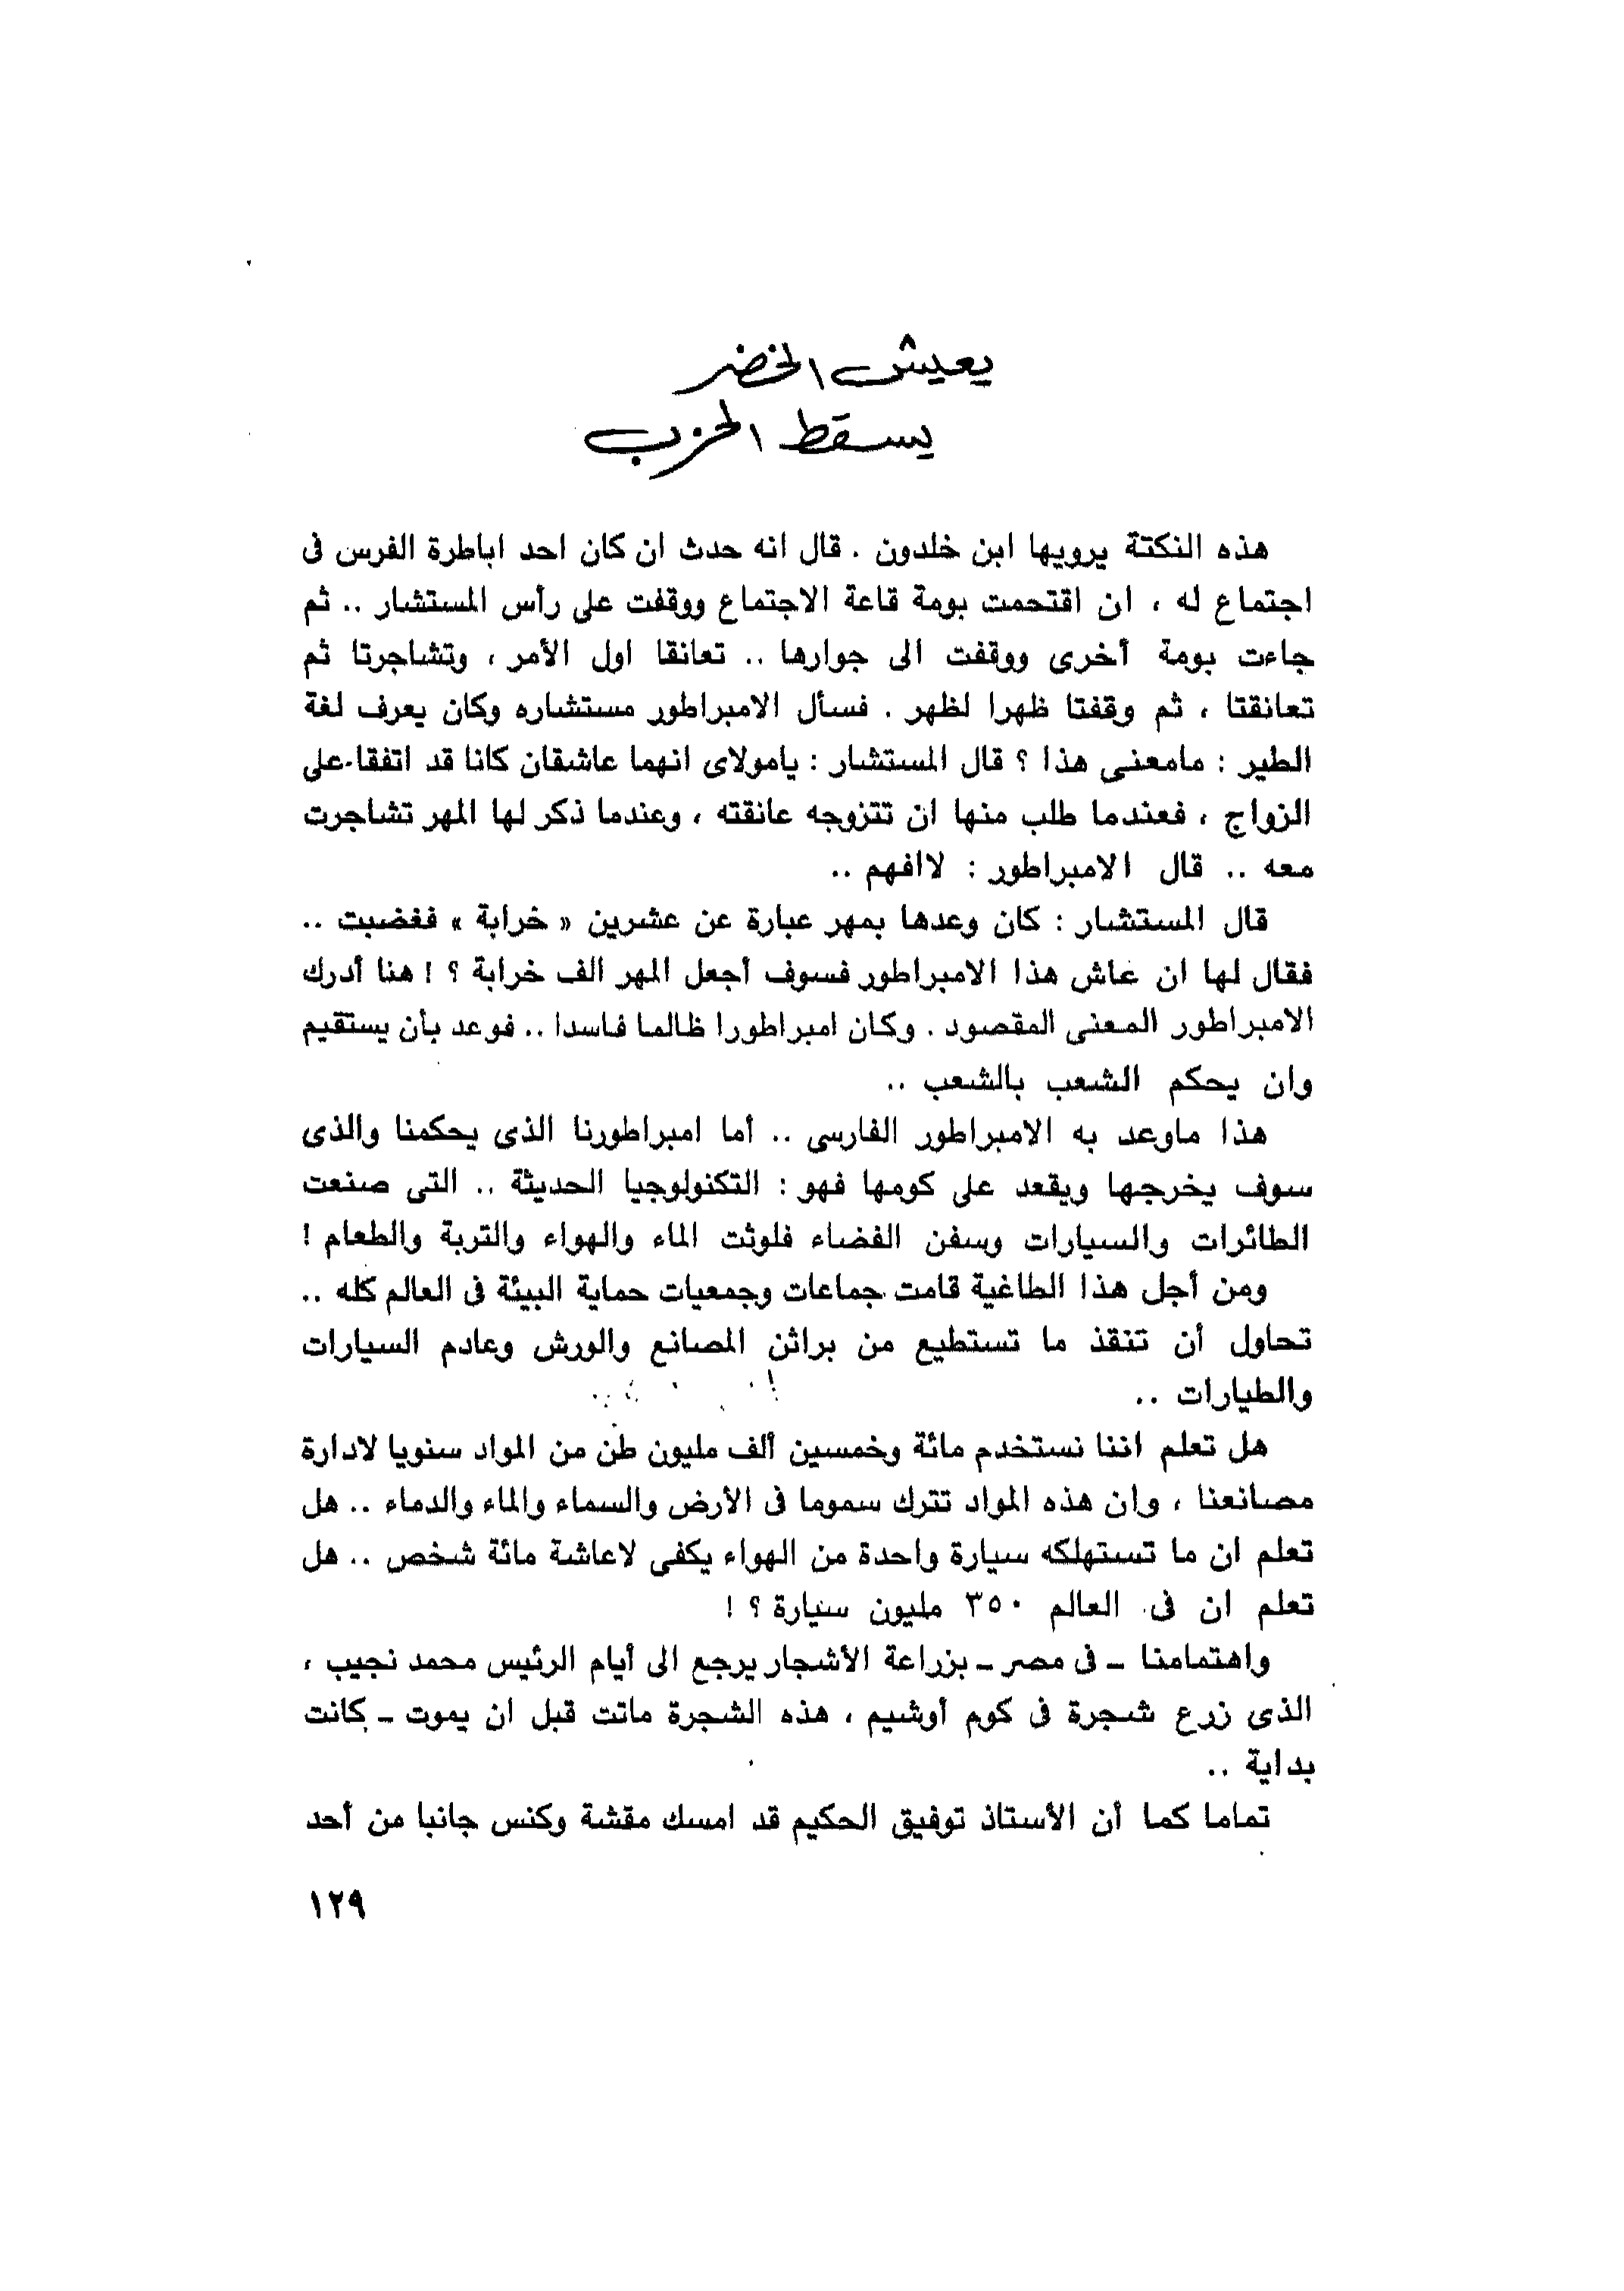 يعيش الخضر
يسقط الحزب
هذه النكتة يرويها ابن خلدون . قال انه حدث ان كان احد اباطرة الفرس فى
اجتماع له ، ان اقتحمت بومة قاعة الاجتماع ووقفت على رأس المستشار .. ثم
جاءت بومة أخرى ووقفت الى جوارها .. تعانقا اول الأمر ، وتشاجرتا ثم
تعانقتا ، ثم وقفتا ظهرا لظهر . فسأل الامبراطور مستشاره وكان يعرف لغة
الطير : مامعنى هذا ؟ قال المستشار : يامولاى انهما عاشقان كانا قد اتفقا على
الزواج ، فعندما طلب منها ان تتزوجه عانقته ، وعندما ذكر لها المهر تشاجرت
معه .. قال الامبراطور : لاافهم ..
قال المستشار : كان وعدها بمهر عبارة عن عشرين « خرابة » فغضبت ..
فقال لها ان عاش هذا الامبراطور فسوف أجعل المهر الف خرابة ؟ ! هنا أدرك
الامبراطور المعنى المقصود . وكان امبراطورا ظالما فاسدا .. فوعد بأن يستقيم
وان يحكم الشعب بالشعب ..
هذا ماوعد به الامبراطور الفارسى .. أما امبراطورنا الذى يحكمنا والذى
سوف يخرجها ويقعد على كومها فهو : التكنولوجيا الحديثة .. التى صنعت
الطائرات والسيارات وسفن الفضاء فلوثت الماء والهواء والتربة والطعام !
ومن أجل هذا الطاغية قامت جماعات وجمعيات حماية البيئة فى العالم كله ..
تحاول أن تنقذ ما تستطيع من براثن المصانع والورش وعادم السيارات
والطيارات ..
هل تعلم اننا نستخدم مائة وخمسين ألف مليون طن من المواد سنويا لادارة
مصانعنا ، وان هذه المواد تترك سموما فى الأرض والسماء والماء والدماء .. هل
تعلم ان ما تستهلكه سيارة واحدة من الهواء يكفى لاعاشة مائة شخص .. هل
تعلم ان فى العالم ٣٥٠ مليون سيارة ؟ !
واهتمامنا ـ فى مصر ـ بزراعة الأشجار يرجع الى أيام الرئيس محمد نجيب ،
الذى زرع شجرة فى كوم أوشيم ، هذه الشجرة ماتت قبل ان يموت ـ كانت
بداية ..
تماما كما أن الأستاذ توفيق الحكيم قد امسك مقشة وكنس جانبا من أحد
١٢٩